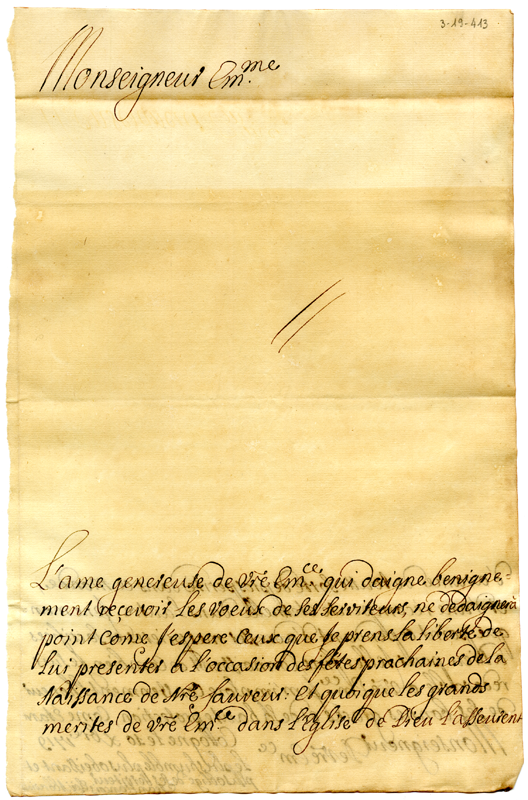 3-19-413
Monseigneur Em.me
L'ame genereuse de Vrẽ Em.ce qui daigne benigne=
ment reçevoir les voeux de ses serviteurs, ne dedaignerà
point com̃e j'espere ceux que je prens la liberté de
lui presenter à l'occasion des fêtes prochaines de la
Naissance de Nrẽ Sauveur: Et quoique les grands
merites de Vrẽ Em.ce dans l'Eglise de Dieu l'asseurent